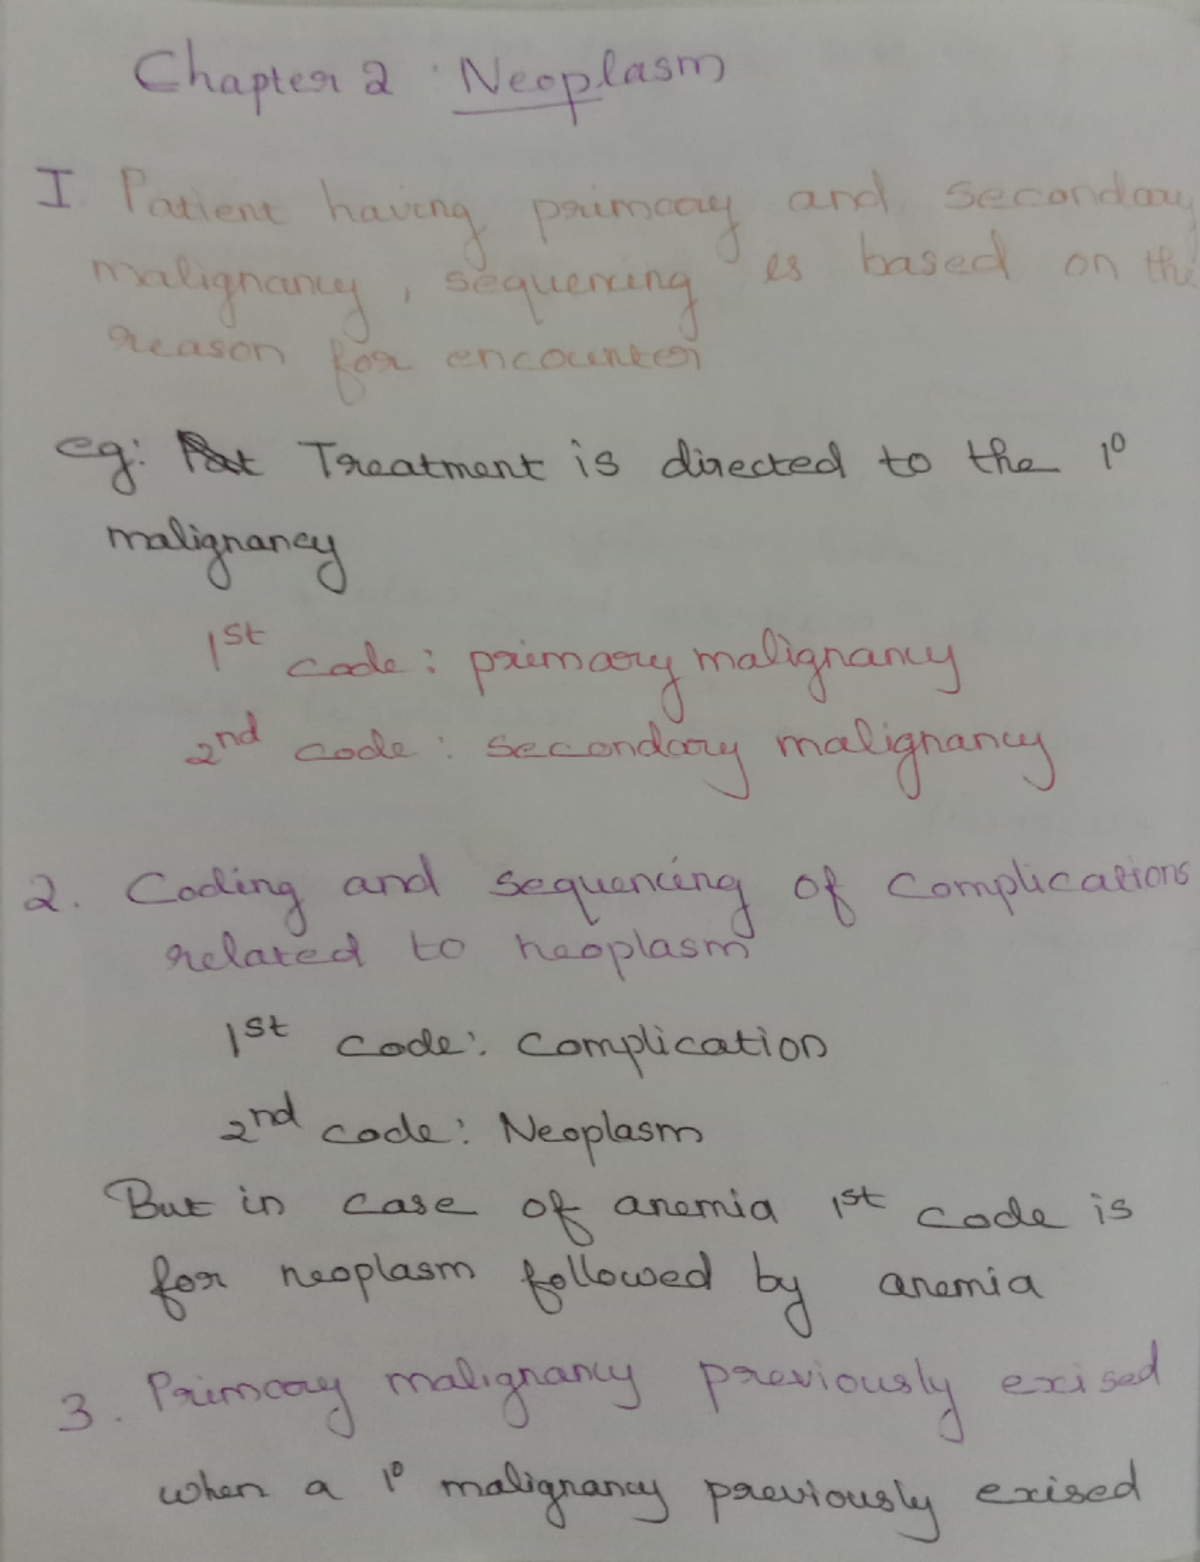 Chapter 2 : Neoplasm
I Patient having primary and secondary
malignancy, sequencing is based on the
reason for encounter
eg: Treatment is directed to the 1°
malignancy
1st code : primary malignancy
2nd code : secondary malignancy
2. Coding and sequencing of complications
related to neoplasm
1st code : complication
2nd code : Neoplasm
But in case of anemia 1st code is
for neoplasm followed by anemia
3. Primary malignancy previously exised
when a 1° malignancy previously exised